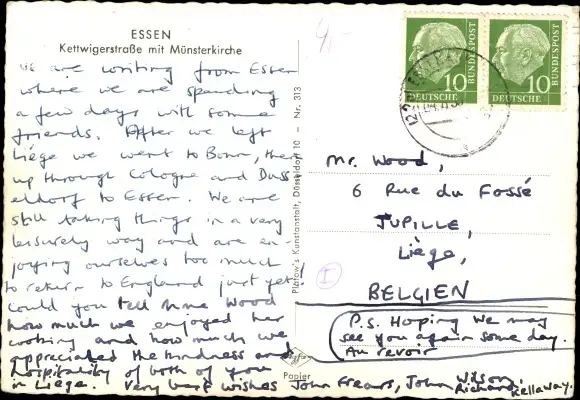 ESSEN
Kettwigerstraße mit Münsterkirche
we are writing from Essen
where we are spending
a few days with some
friends. After we left
Liége we went to Bonn, then
up through Cologne and Duss
eldorf to Essen. We are
still taking things in a very
leisurely way and are en-
joying ourselves too much
to return to England just yet.
Could you tell Mme Wood
how much we enjoyed her
cooking and how much we
appreciated the kindness and
hospitality of both of you
in Liege. Very best wishes John Frears, John Wilson,
Richard Kellaway.
Kunstanstalt, Düsseldorf 10 - Nr. 313
Papier
10
DEUTSCHE
BUNDESPOST
10
DEUTSCHE
BUNDESPOST
Mr. Wood,
6 Rue du Fossé
JUPILLE,
Liége,
BELGIEN
P.S. Hoping we may
see you again some day.
Au revoir
I